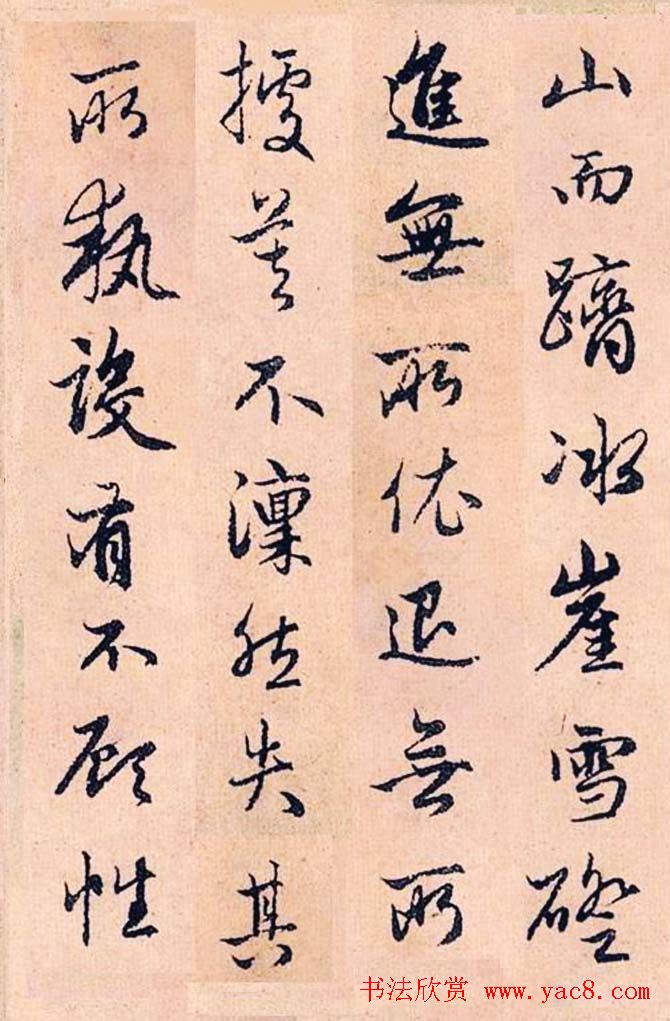 山而躋冰崖雪磴
進無所依退無所
據莫不凜然失其
所執設有不顧性
书法欣赏 www.yac8.com